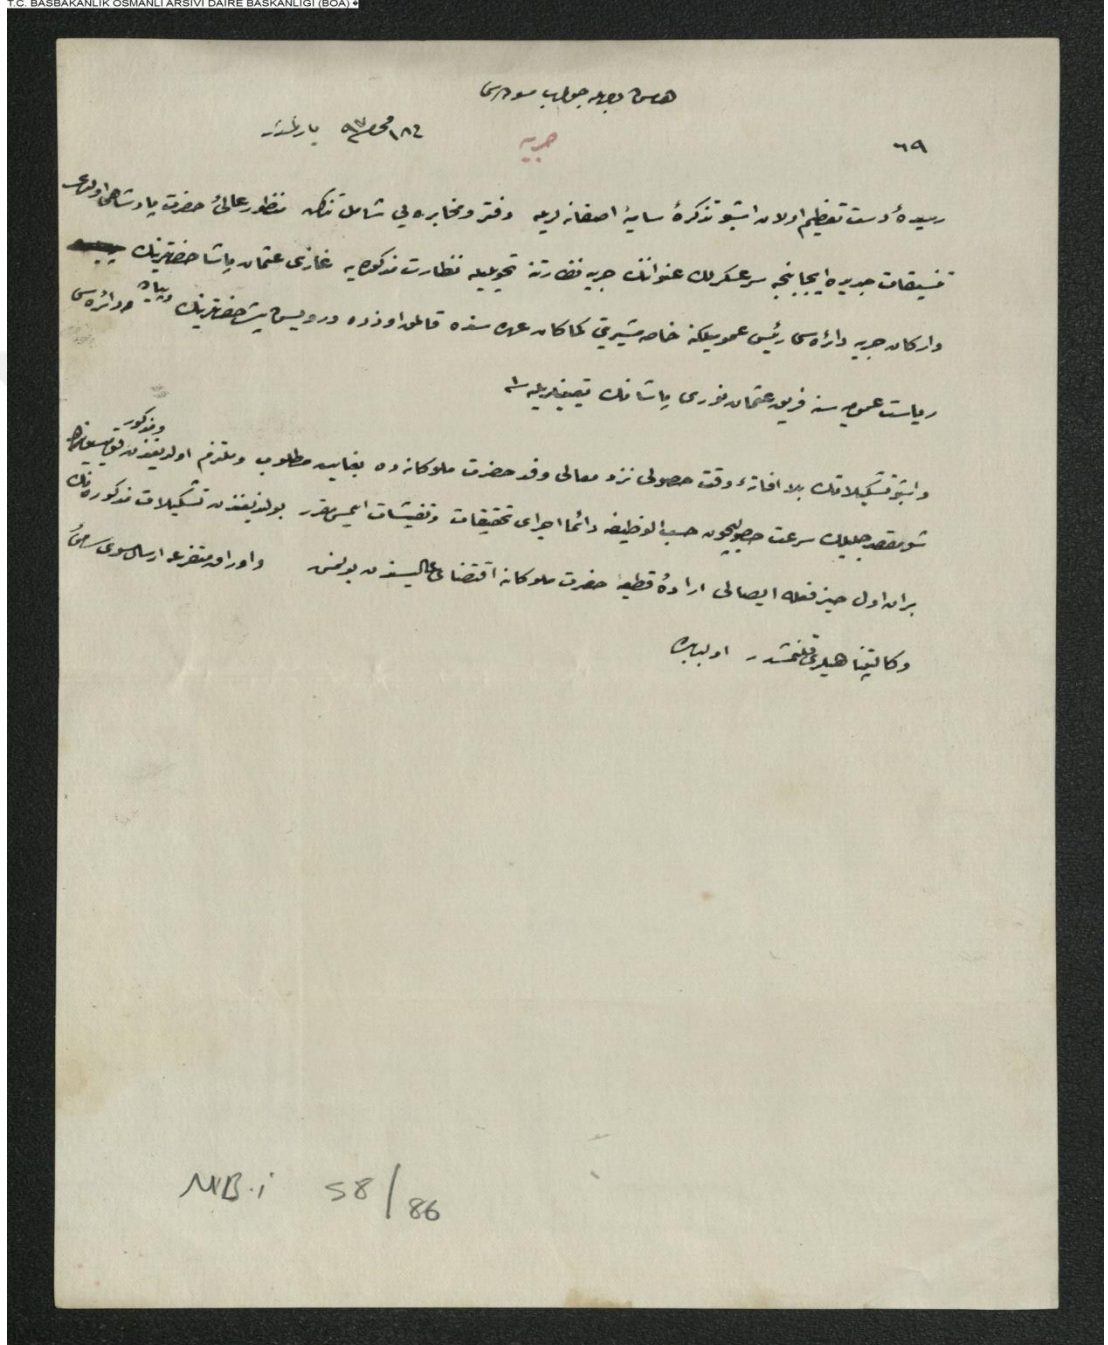 T.C. BAŞBAKANLIK OSMANLI ARŞİVİ DAİRE BAŞKANLIĞI (BOA)
جواب مسوده‌سی
٦٩ حربیه
رسیدهٔ دست تعظیم اولان اشبو تذکرهٔ سامیهٔ آصفانه‌لریله دفتر و مخابره‌یی شامل تذکره منظور عالئ حضرت پادشاهی اولمش
تنسیقات جدیده ایجابنجه سرعسکرلك عنواننك حربیه نظارتنه تحویلیله نظارت مذکوره‌یه غازی عثمان پاشا حضرتلرینك
وارکان حربیه دائره‌سی رئیس عمومیلکنه خاصه مشیریتی کماکان عهده‌سنده قالمق اوزره درویش پاشا حضرتلرینك دائره‌سی
ریاست عمومیه‌سنه فریق عثمان نوری پاشانك تعیینلریله
واشبو تشکیلاتك بلا افاتهٔ وقت حصولی نزد معالی وفد حضرت ملوکانه‌ده بغایت مطلوب وملتزم اولدیغندن ومذکور
شو مقصد جلیلك سرعت حصولیچون حسب الوظیفه دائما اجرای تحقیقات وتفتیشات ایتمسی مقرر بولندیغندن تشکیلات مذکوره‌نك
بر آن اول حیز فعله ایصالی ارادهٔ قطعیهٔ حضرت ملوکانه اقتضای عالیسندن بولنمش واوراق متفرعه ارسال سوی سامئ
وکالتپناهیلری قلنمشدر اولبابده
MB.i 58/86